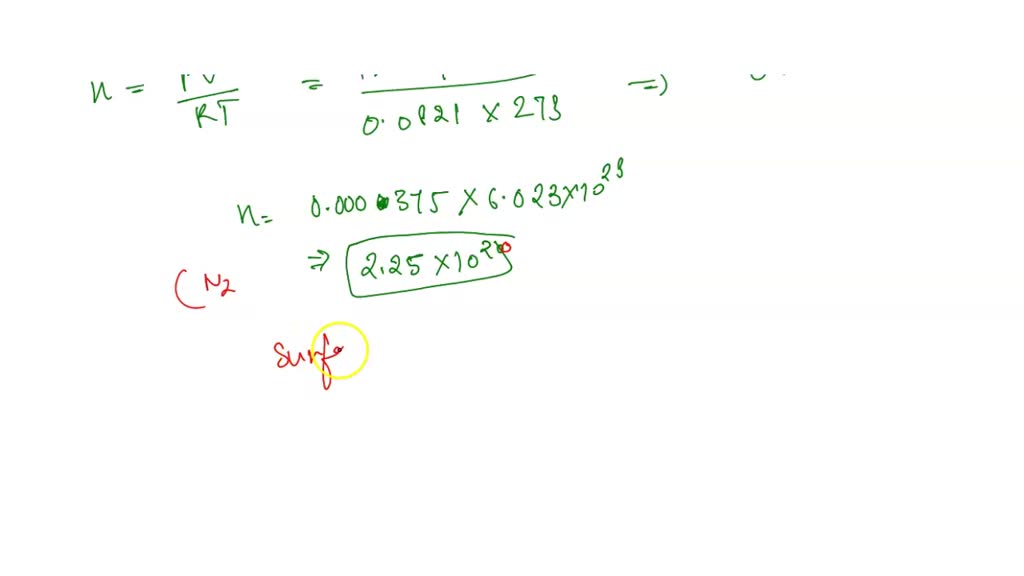 n = PV / RT = / 0.0821 × 273 =>
n = 0.000375 × 6.023 × 10^23
=> 2.25 × 10^20
(N2
Surfa